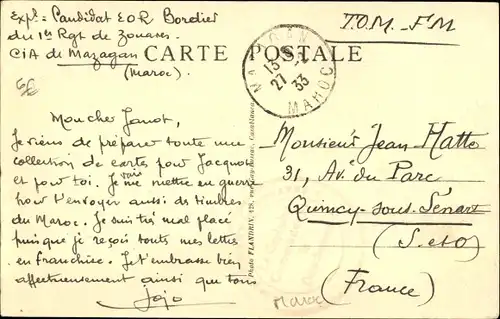 Expr = Candidat E O R Bordier
du 1er Rgt de Zouaves
CIA de Mazagan
(Maroc).
CARTE POSTALE
T.O.M.-F.M
MAZAGAN
27
33
MAROC
Mon cher Janot,
Je viens de préparer toute une
collection de cartes pour Jacquot
et pour toi. Je vais me mettre en guerre
pour t'envoyer aussi des timbres
du Maroc. Je suis très mal placé
puisque je reçois toutes mes lettres
en franchise. Je t'embrasse bien
affectueusement ainsi que tous
Jojo
Photo FLANDRIN, 128, Casablanca
Monsieur Jean Hatte
31, Av. du Parc
Quincy-sous-Sénart
(S. et O)
(France)
Maroc